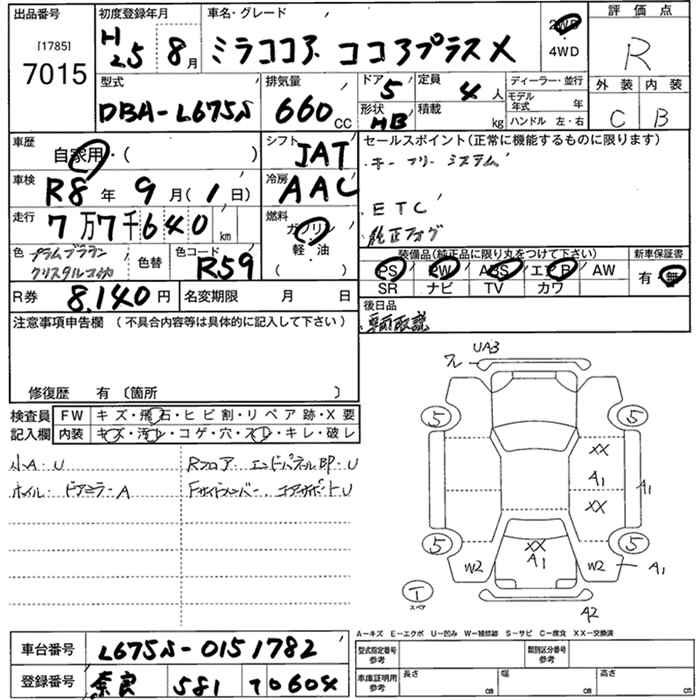 出品番号 初度登録年月 車名・グレード 評価点
[1785]
7015
H25 8月 ミラココア ココアプラスX 2WD ・ 4WD R
型式 排気量 ドア 5 定員 4人 ディーラー・並行 外装 内装
DBA-L675S 660cc 形状 HB 積載 kg モデル年式 年 ハンドル 左・右 C B
車歴 自家用・( ) シフト JAT セールスポイント(正常に機能するものに限ります)
キーフリーシステム
車検 R8年 9月(1日) 冷房 AAC
走行 7万7千640km 燃料 ガソリン・軽・油 ETC
純正フォグ
色 プラムブラウンクリスタルマイカ 色替 色コード R59 装備品(純正品に限り丸をつけて下さい) 新車保証書
PS PW ABS エアB AW 有・無
SR ナビ TV カワ
R券 8,140円 名変期限 月 日 後日品
注意事項申告欄 (不具合内容等は具体的に記入して下さい)
車両取説
修復歴 有〔箇所 〕
検査員記入欄 FW キズ・飛石・ヒビ割・リペア跡・X要
内装 キズ・汚レ・コゲ・穴・スレ・キレ・破レ
小A・U Rフロア・エンドパネルBP・U
ホイル・ドアミラーA Fサイドメンバー・コアサポートU
UA3
フレ
5 5
XX
A1 A1
XX
5 5
XX
A1
W2 W2 A1
T
スペア
A2
A-キズ E-エクボ U-凹み W-補修跡 S-サビ C-腐食 XX-交換済
車台番号 L675S-0151782 型式指定番号 参考 類別区分番号 参考
登録番号 奈良 581 す0604 車庫証明用 参考 長さ cm 幅 cm 高さ cm